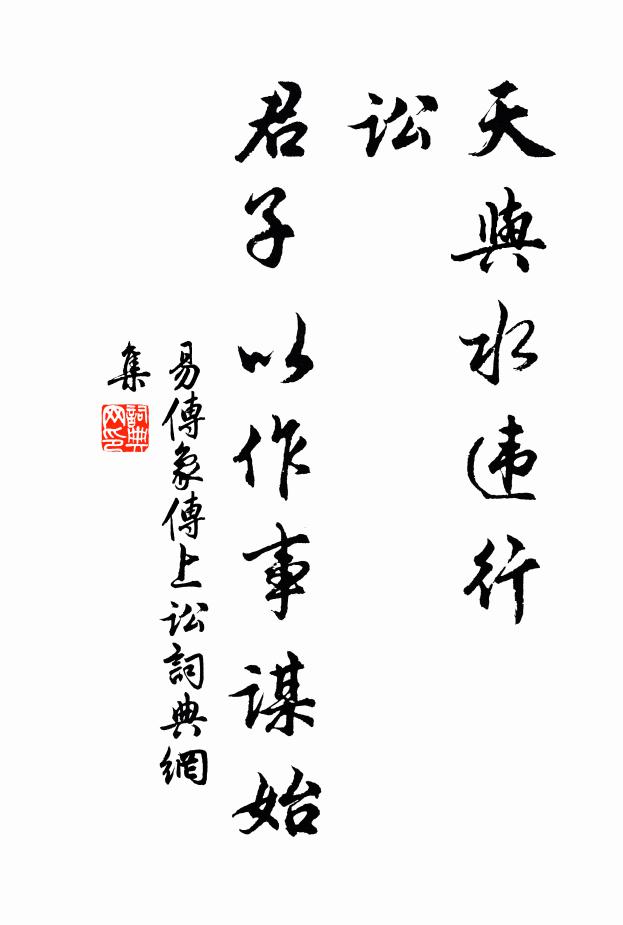 天與水违行
訟
君子以作事謀始
易傳象傳上訟詞典網
集
詞典
网印